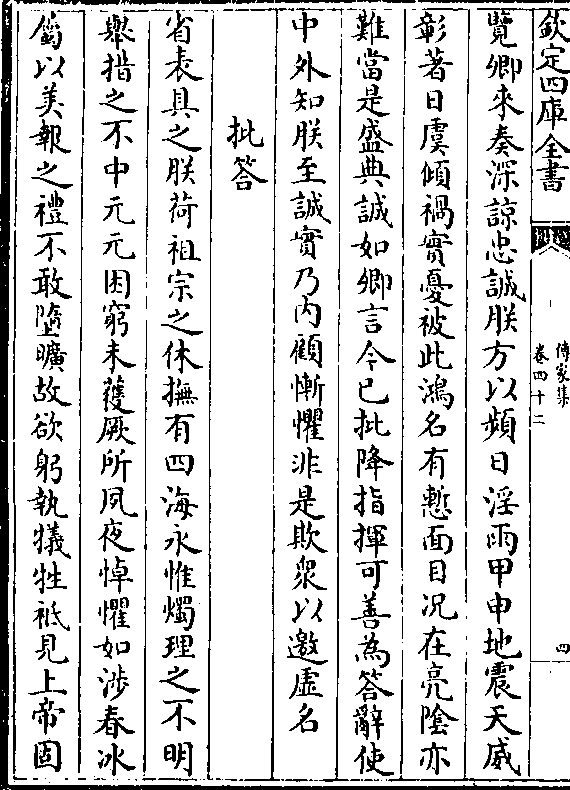 欽定四庫全書
傳家集
卷四十二
四
覽卿來奏深諒忠誠朕方以頻日淫雨甲申地震天威
彰著日虞傾禍實憂被此鴻名有慙面目况在亮陰亦
難當是盛典誠如卿言今已批降指揮可善為答辭使
中外知朕至誠實乃内顧慚懼非是欺衆以邀虛名
批答
省表具之朕荷祖宗之休撫有四海永惟燭理之不明
舉措之不中元元困窮未獲厥所夙夜悼懼如涉春冰
㒺以美報之禮不敢墮曠故欲躬執犠牲祗見上帝固